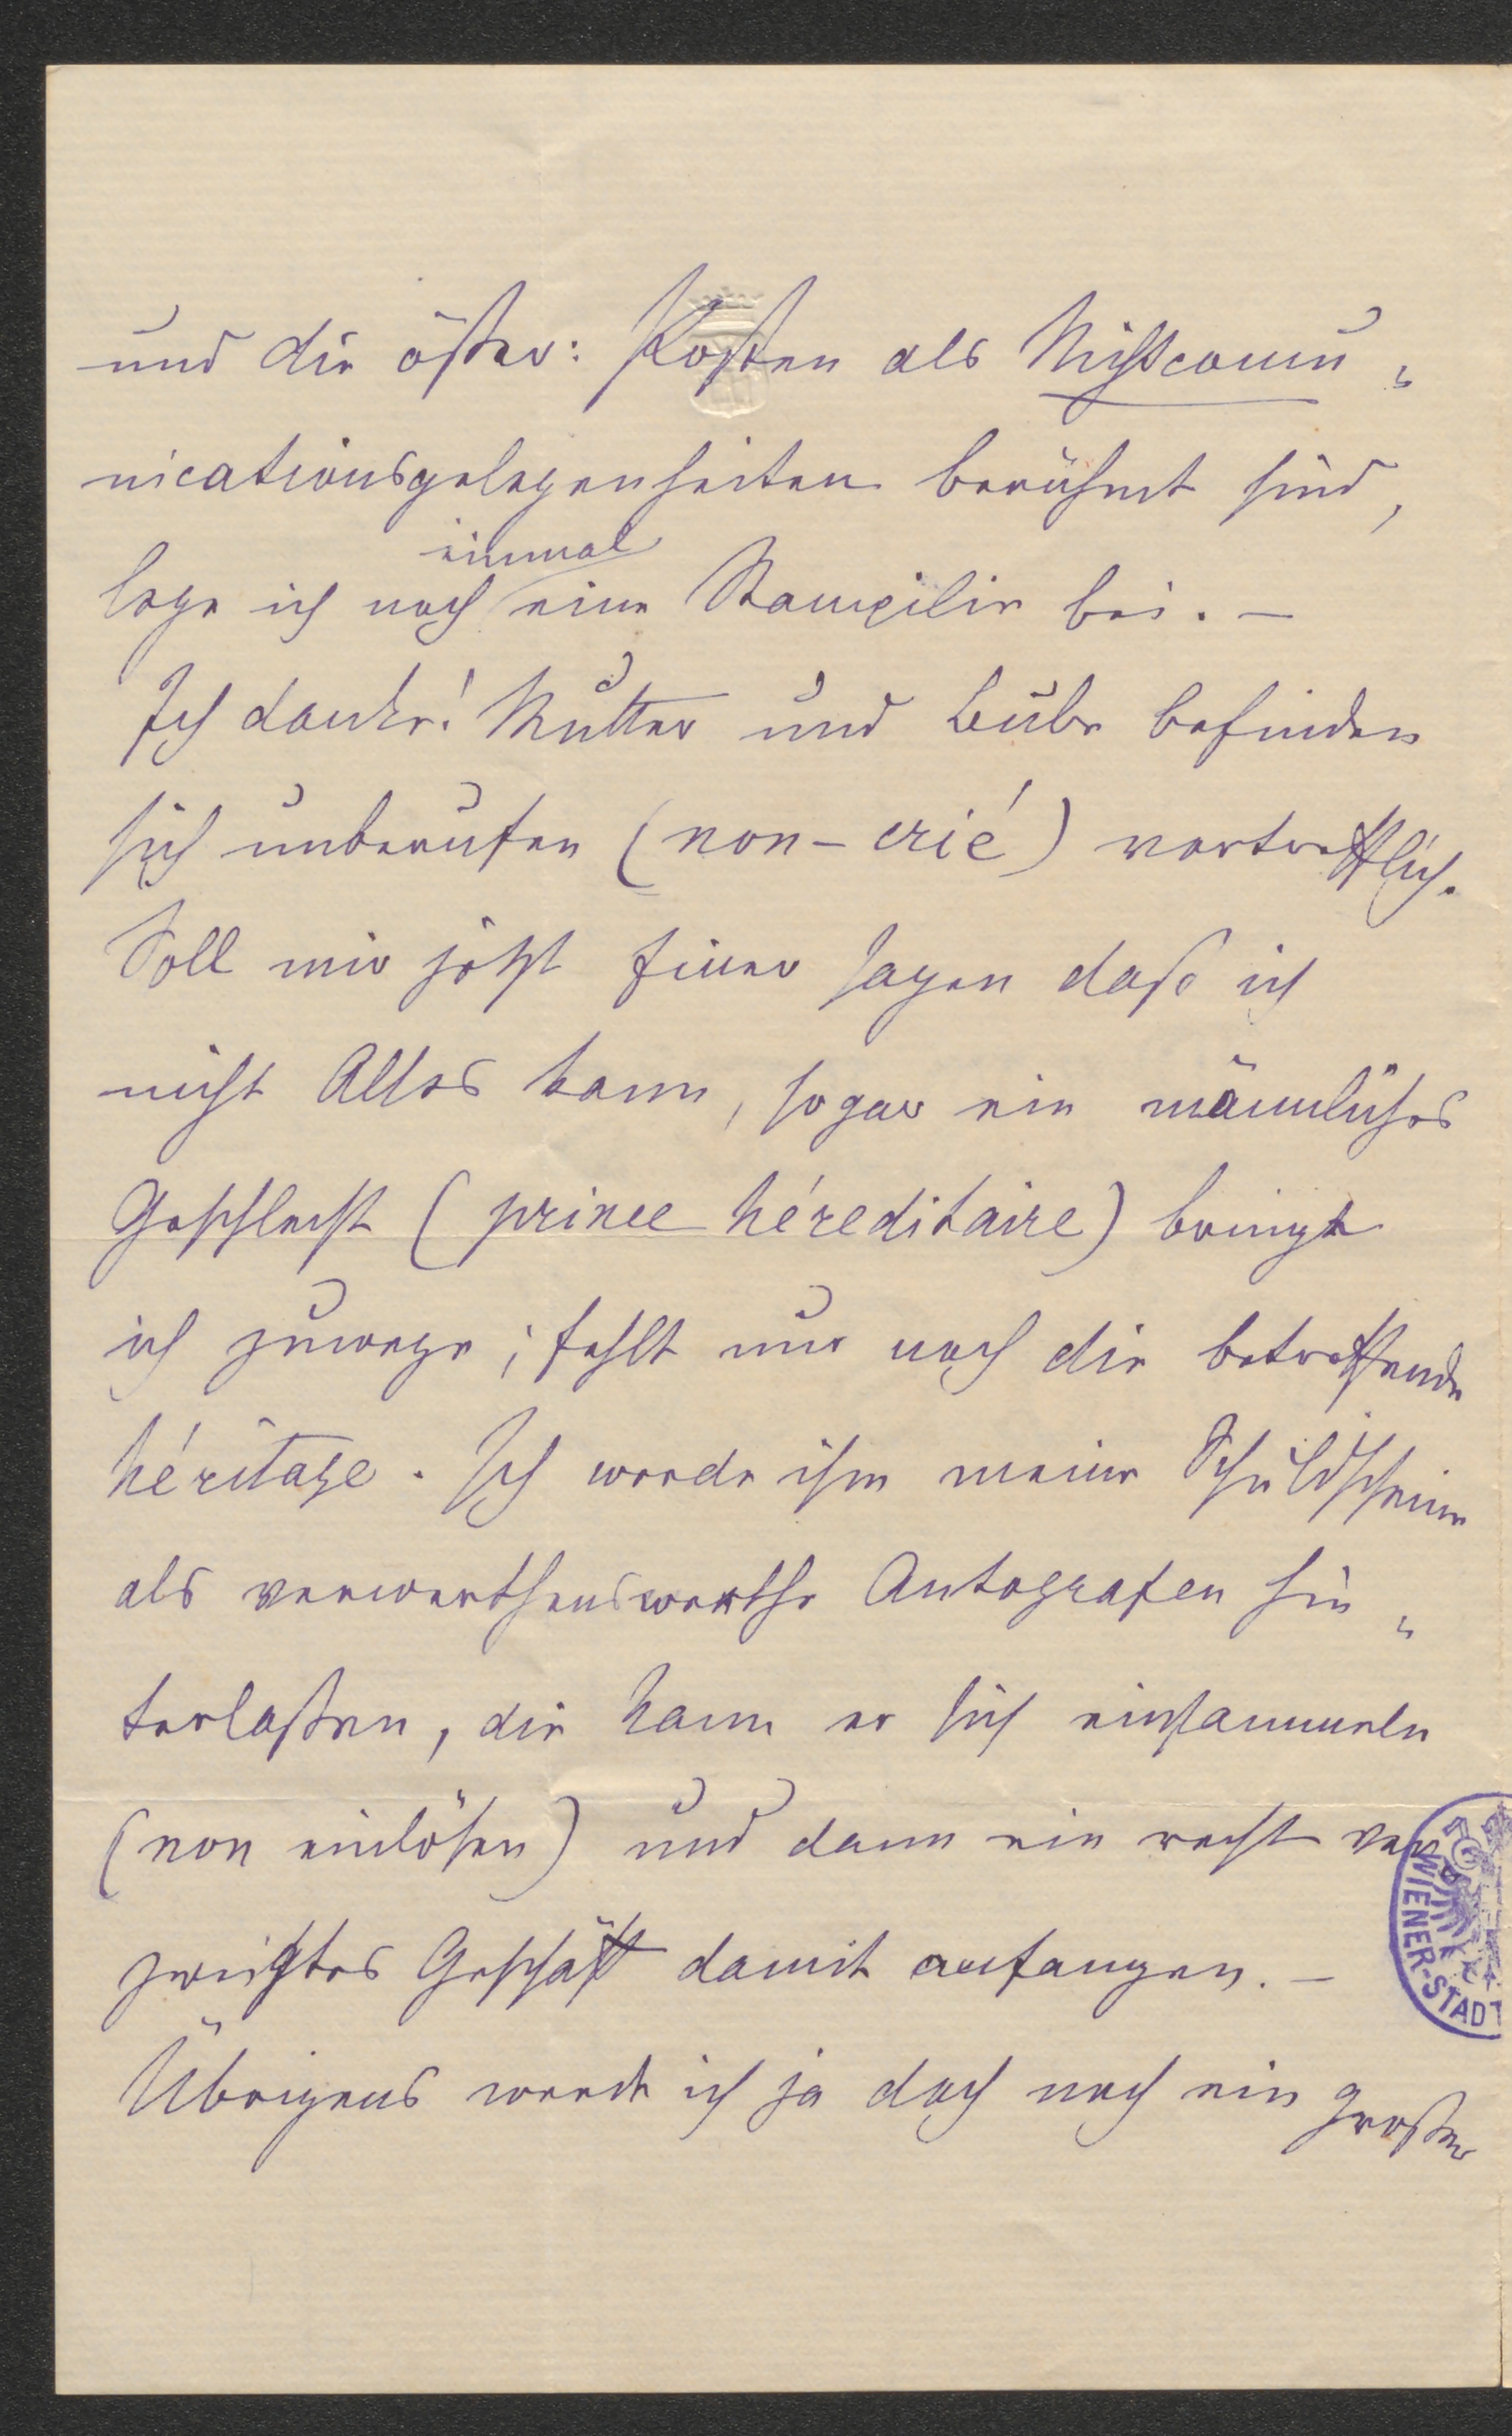 und die öster: Posten als Nichtcomu„
nicationsgelegenheiten berühmt sind,
einmal
lege ich noch eine Stampilie bei. –
Ich danke! Mutter und Bube befinden
sich unberufen (non-crié) vortrefflich.
Soll mir jetzt Einer sagen daß ich
nicht Alles kann, sogar ein männliches
Geschlecht (prince héreditaire) bringe
ich zuwege; fehlt nur noch die betreffende
héritage. Ich werde ihm meine Schuldscheine
als verwerthenswerthe Autografen hin„
terlaßen, die kann er sich einsammeln
(non einlösen) und dann ein recht ver„
zweigtes Geschäft damit anfangen. –
Übrigens werde ich ja doch noch ein großer
WIENER-STADT